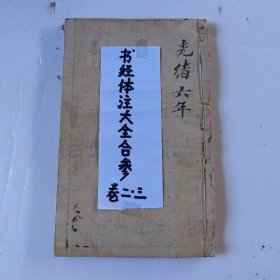 光绪六年
书经体注大全合参
卷二·三